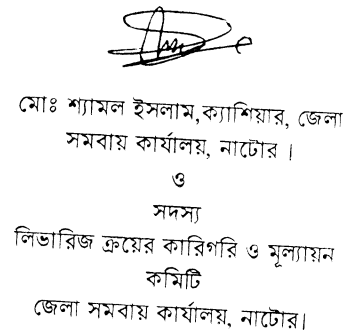 মোঃ শ্যামল ইসলাম,ক্যাশিয়ার, জেলা
সমবায় কার্যালয়, নাটোর ।
ও
সদস্য
লিভারিজ ক্রয়ের কারিগরি ও মূল্যায়ন
কমিটি
জেলা সমবায় কার্যালয়, নাটোর।